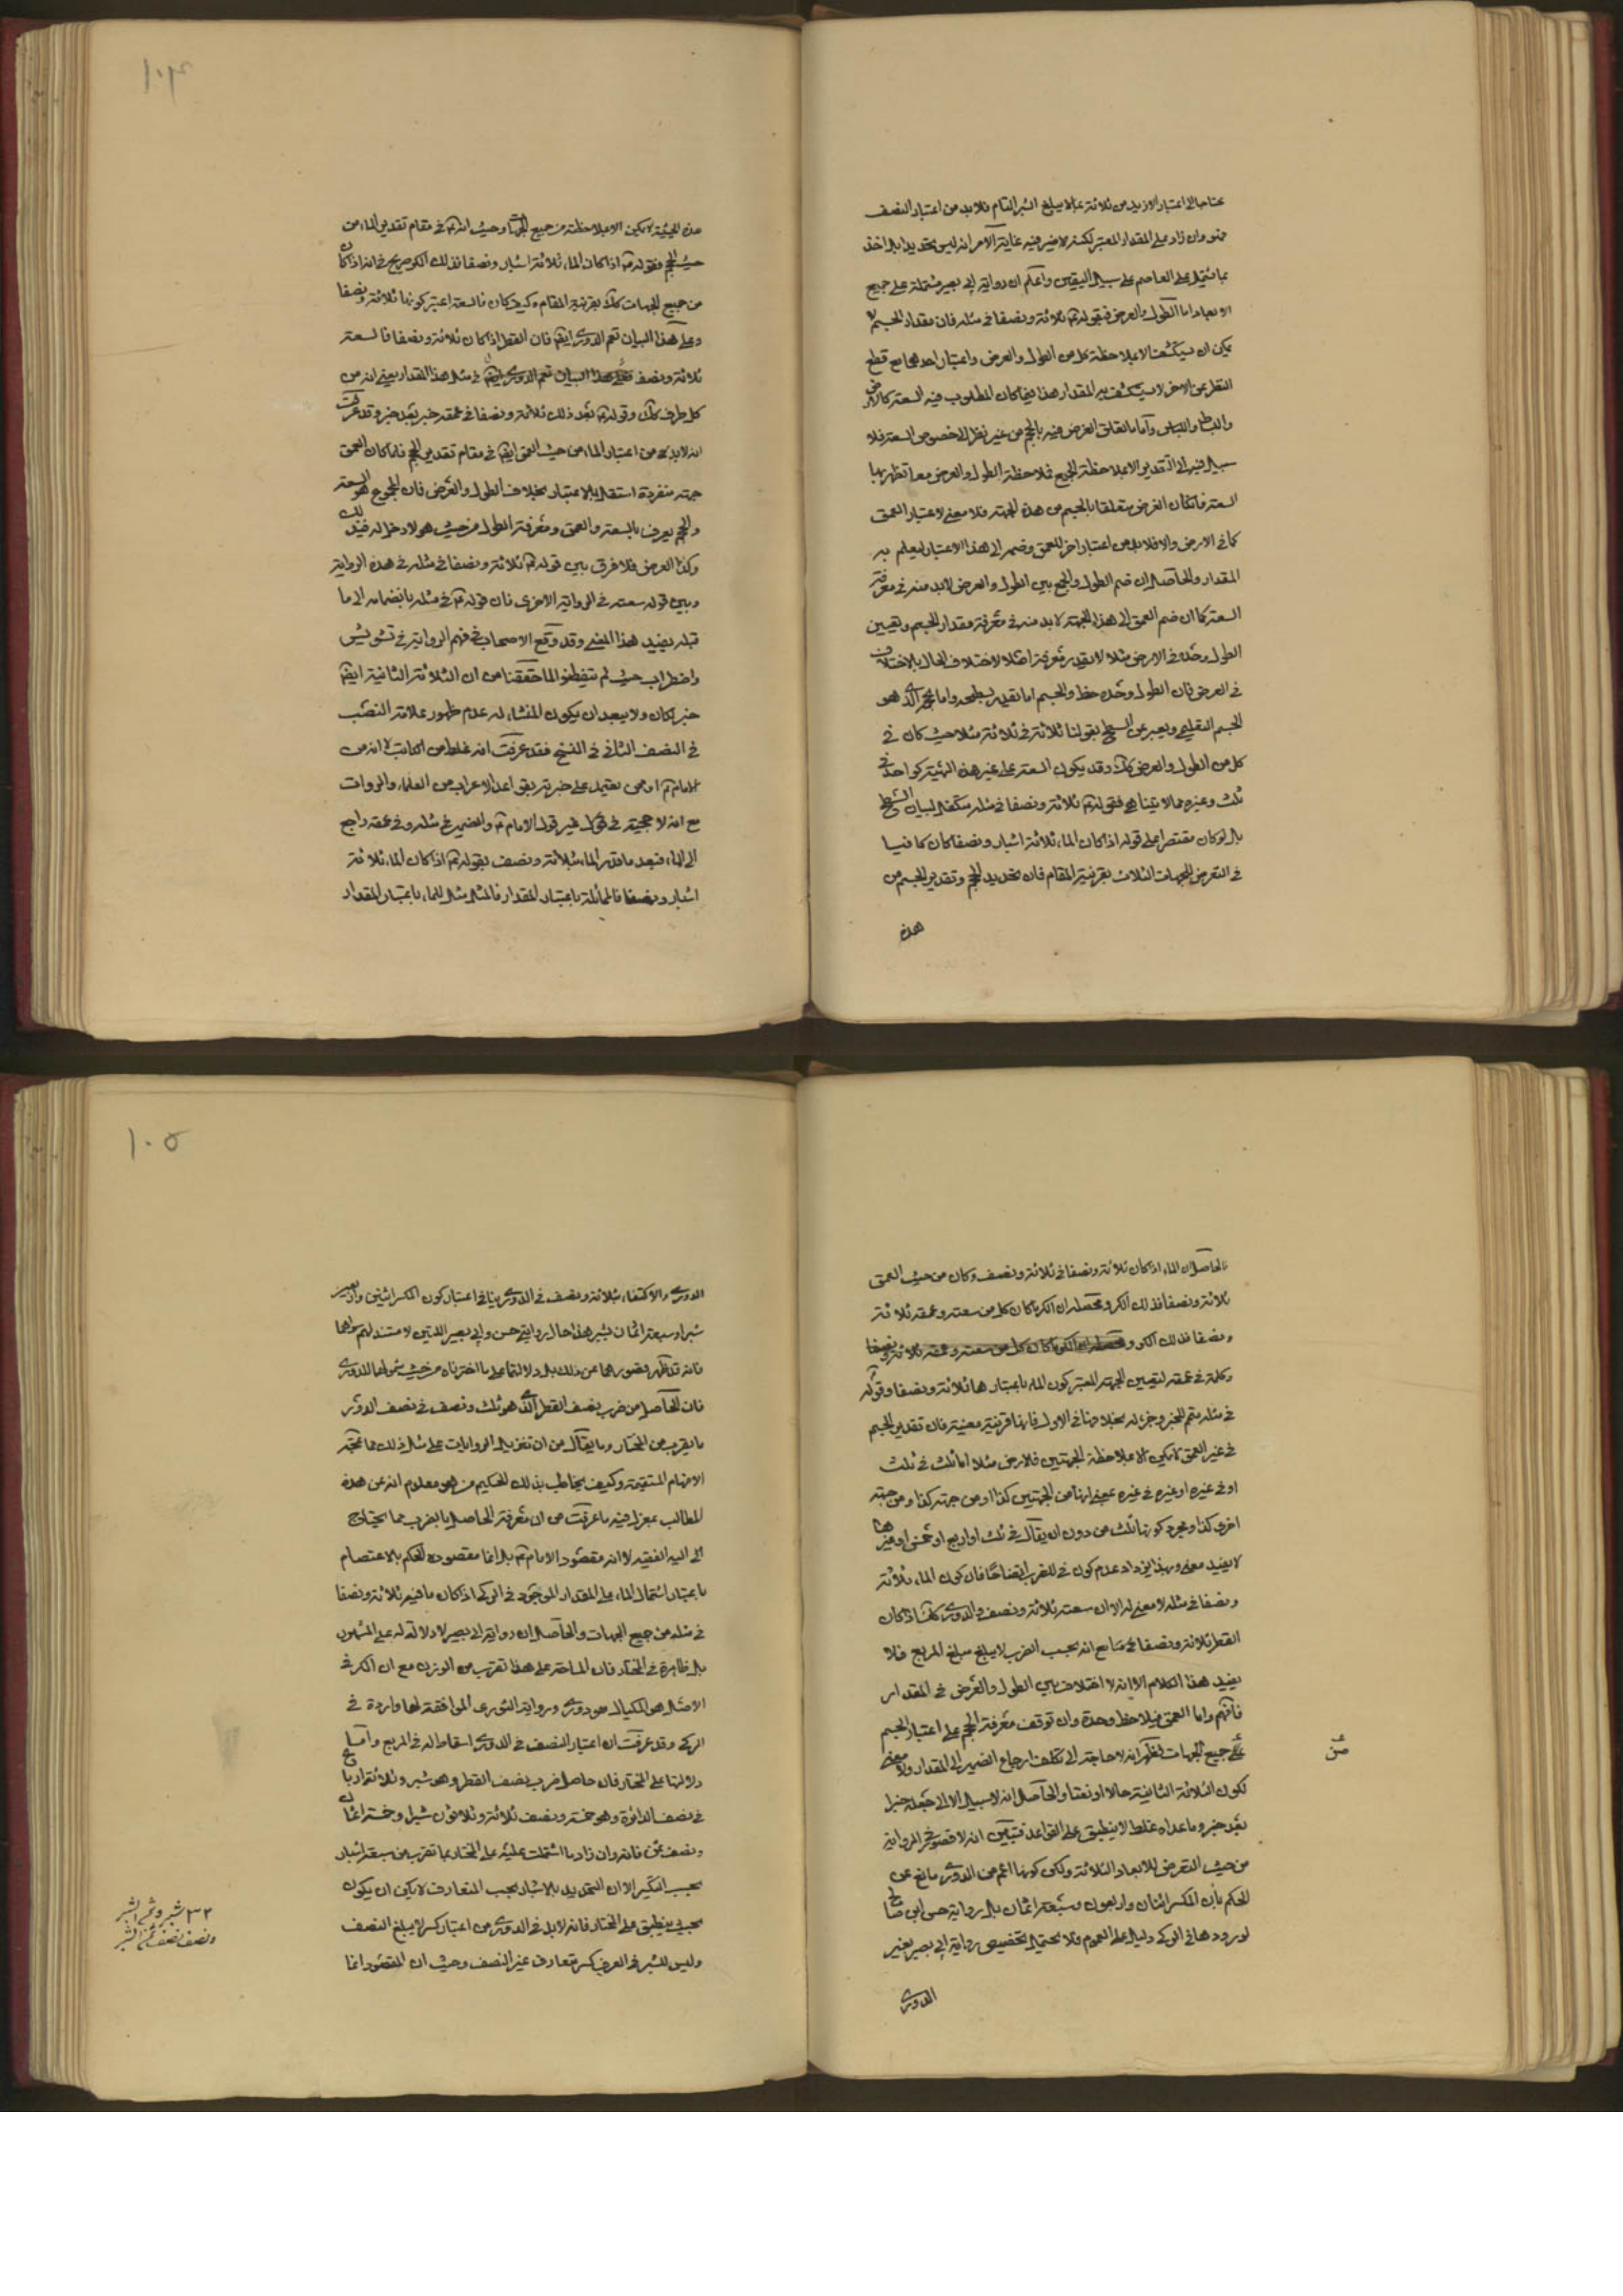 محتاجا الى اعتبار الازيد من ثلاثة بما لا يبلغ الشبر التام فلابد من اعتبار النصف
فهو وان زاد على المقدار المعتبر لكنه لا ضير فيه غاية الامر انه ليس تحديدا بل اخذ
بما يشتمل على العاصم على سبيل اليقين واعلم ان رواية ابي بصير مشتملة على جميع
الابعاد اما الطول والعرض فبقوله ثلاثة ونصفا في مثله فان مقدار الجسم لا
يمكن ان يستكشف الا بملاحظة كل من الطول والعرض واعتبار احدهما مع قطع
النظر عن الاخر لا يستكشف به المقدار هذا فيما كان المطلوب فيه السعة كالارض
والبساط واللباس واما ما تعلق الغرض فيه بالحجم من غير نظر الى خصوص السعة فلا
سبيل فيه الى التقدير الا بملاحظة الجميع فملاحظة الطول والعرض معا تظهر بها
السعة فان كان الغرض متعلقا بالجسم من هذه الجهة فلا معنى لاعتبار العمق
كما في الارض والا فلابد من اعتبار اخر للعمق وضمه الى هذا الاعتبار ليعلم به
المقدار والحاصل ان ضم الطول والجمع بين الطول والعرض لابد منه في معرفة
السعة كما ان ضم العمق الى هذا الجهة لابد منه في معرفة مقدار الجسم وتعيين
الطول وحده في الارض مثلا لا يفيد معرفة اصلا لاختلاف الحال بالاختلاف
في العرض فان الطول وحده خط والجسم اما تقدير بسطحه واما بحجمه الذي هو
الجسم التعليمي ويعبر عن السطح بقولنا ثلاثة في ثلاثة مثلا حيث كان في
كل من الطول والعرض كك وقد يكون السعة على غير هذه الهيئة كواحد في
ثلث وغيره مما لا يتناهى فقوله ثلاثة ونصفا في مثله متكفل لبيان السطح
بل لو كان مقتصرا على قوله اذا كان الماء ثلاثة اشبار ونصفا كان كافيا
في التعرض للجهات الثلاث بقرينة المقام فان تحديد الحجم وتقدير الجسم من
هذه
١٠٤
هذه الحيثية لا يمكن الا بملاحظته من جميع الجهات وحيث انه في مقام تقدير الماء من
حيث الحجم فقوله اذا كان الماء ثلاثة اشبار ونصفا فذلك الكر صريح في انه اذا كان
من جميع الجهات كك بقرينة المقام وكيف كان فالسعة اعتبر كونها ثلاثة ونصفا
وعلى هذا البيان تعم الدوري ايضا فان القطر اذا كان ثلاثة ونصفا فالسعة
ثلاثة ونصف في مثل هذا المقدار يعني انه من
كل طرف كك وقوله بعد ذلك ثلاثة ونصفا في عمقه خبر بعد خبر وقد عرفت
انه لابد من اعتبار الماء من حيث العمق ايضا في مقام تقدير الحجم فلما كان العمق
جهة منفردة استقل بالاعتبار بخلاف الطول والعرض فان المجموع هو السعة
والحجم يعرف بالسعة والعمق ومعرفة الطول من حيث هو لا دخل له في ذلك
وكذا العرض فلا فرق بين قوله ثلاثة ونصفا في مثله في هذه الرواية
وبين قوله سعته في الرواية الاخرى فان قوله في مثله بانضمامه الى ما
قبله يفيد هذا المعنى وقد وقع الاصحاب في فهم الرواية في تشويش
واضطراب حيث لم يتفطنوا لما حققناه من ان الثلاثة الثانية ايضا
خبر لكان ولا يبعد ان يكون المنشاء له عدم ظهور علامة النصب
في النصف الثاني في النسخ فقد عرفت انه غلط من الكاتب لا انه من
الامام او ممن يعتمد على خبرته بقواعد الاعراب من العلماء والروات
مع انه لا حجية في قول غير قول الامام والضمير في مثله وفي عمقه راجع
الى الماء فبعد ما قدر الماء بثلاثة ونصف بقوله اذا كان الماء ثلاثة
اشبار ونصفا فالمماثلة باعتبار المقدار فالمثل مثل للماء باعتبار المقدار
فالحاصل ان الماء اذا كان ثلاثة ونصفا في ثلاثة ونصف وكان من حيث العمق
ثلاثة ونصفا فذلك الكر ومحصله ان الكر ما كان كل من سعته وعمقه ثلاثة
ونصفا فذلك الكر
وكلمة في عمقه لتعيين الجهة المعتبر كون الماء باعتبارها ثلاثة ونصفا وقوله
في مثله متمم للخبر وجزء له بخلاف ما في الاول فانها قرينة معينة فان تقدير الجسم
في غير العمق لا يمكن الا بملاحظة الجهتين فالارض مثلا اما ثلث في ثلث
او في غيره او غيره في غيره بمعنى انها من الجهتين كذا او من جهة كذا ومن جهة
اخرى كذا ومجرد كونها ثلث من دون ان يقال في ثلث او اربع او خمس او غيرها
لا يفيد معنى وبهذا يزداد عدم كون في للضرب اتضاحا فان كون الماء ثلاثة
ونصفا في مثله لا معنى له الا ان سعته ثلاثة ونصف والدوري كك اذا كان
القطر ثلاثة ونصفا مع انه بحسب الضرب لا يبلغ مبلغ المربع فلا
يفيد هذا الكلام الا انه لا اختلاف بين الطول والعرض في المقدار
فافهم واما العمق فيلاحظ وحده وان توقف معرفة الحجم على اعتبار الجسم
من جميع الجهات فظهر انه لا حاجة الى تكلف ارجاع الضمير الى المقدار ولا معنى
لكون الثلاثة الثانية حالا او نعتا والحاصل انه لا سبيل الا الى جعله خبرا
بعد خبر وما عداه غلط لا ينطبق على القواعد فتبين انه لا قصور في الرواية
من حيث التعرض للابعاد الثلاثة ولكن كونها اعم من الدوري مانع عن
الحكم بان الكر اثنان واربعون وسبعة اثمان بل رواية حسن ابن صالح
لورودها في الركي دليل على العموم فلا يحتمل تخصيص رواية ابي بصير بغير
الدوري
١٠٥
الدوري والاكتفاء بثلاثة ونصف في الدوري ينافي اعتبار كون الكر اثنين واربعين
شبرا وسبعة اثمان شبر هذا حال روايتي حسن وابي بصير اللتين لا مستند لهم سواهما
فانه قد ظهر قصورهما عن ذلك بل دلالتهما على ما اخترناه من حيث شمولهما للدوري
فان الحاصل من ضرب نصف القطر الذي هو ثلث ونصف في نصف الدور
ما يقرب من المختار وما يقال من ان تنزيل الروايات على مثل ذلك مما تمجه
الافهام المستقيمة وكيف يخاطب بذلك الحكيم من هو معلوم انه عن هذه
المطالب بمعزل فيه ما عرفت من ان معرفة الحاصل بالضرب مما يحتاج
اليه الفقيه لا انه مقصود الامام بل انما مقصوده الحكم بالاعتصام
باعتبار اشتمال الماء على المقدار الموجود في الركي اذا كان ما فيه ثلاثة ونصفا
في مثله من جميع الجهات والحاصل ان رواية ابي بصير لا دلالة له على المشهور
بل ظاهرة في المختار فان المساحة على هذا تقرب من الوزن مع ان الكر في
الاصل هو المكيال هو دوري ورواية الثوري الموافقة لها واردة في
الركي وقد عرفت ان اعتبار النصف في الدوري اسقاط له في المربع واما
دلالتها على المختار فان حاصل ضرب نصف القطر وهو شبر وثلاثة ارباع
في نصف الدائرة وهو خمسة ونصف ثلاثة وثلاثون شبرا وخمسة اثمان
ونصف ثمن فانه وان زاد ما اشتملت عليه على المختار بما تقرب من سبعة اشبار
بحسب التكسير الا ان التحديد بالاشبار بحسب المتعارف لا يمكن ان يكون
بحيث ينطبق على المختار فانه لابد في الدوري من اعتبار كسر لا يبلغ النصف
وليس للشبر في العرف كسر متعارف غير النصف وحيث ان المقصود انما
٣٢ شبر وثمن الشبر
ونصف نصف ثمن الشبر